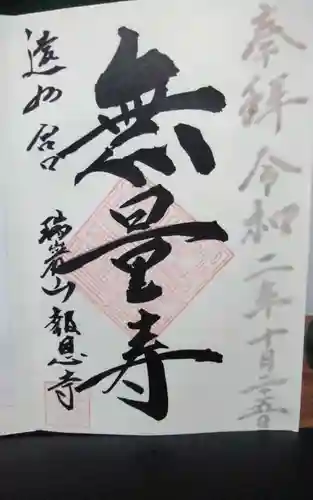 奉拝 令和二年十月二五日
無量寿
遠州 舘
瑞巖山 報恩寺